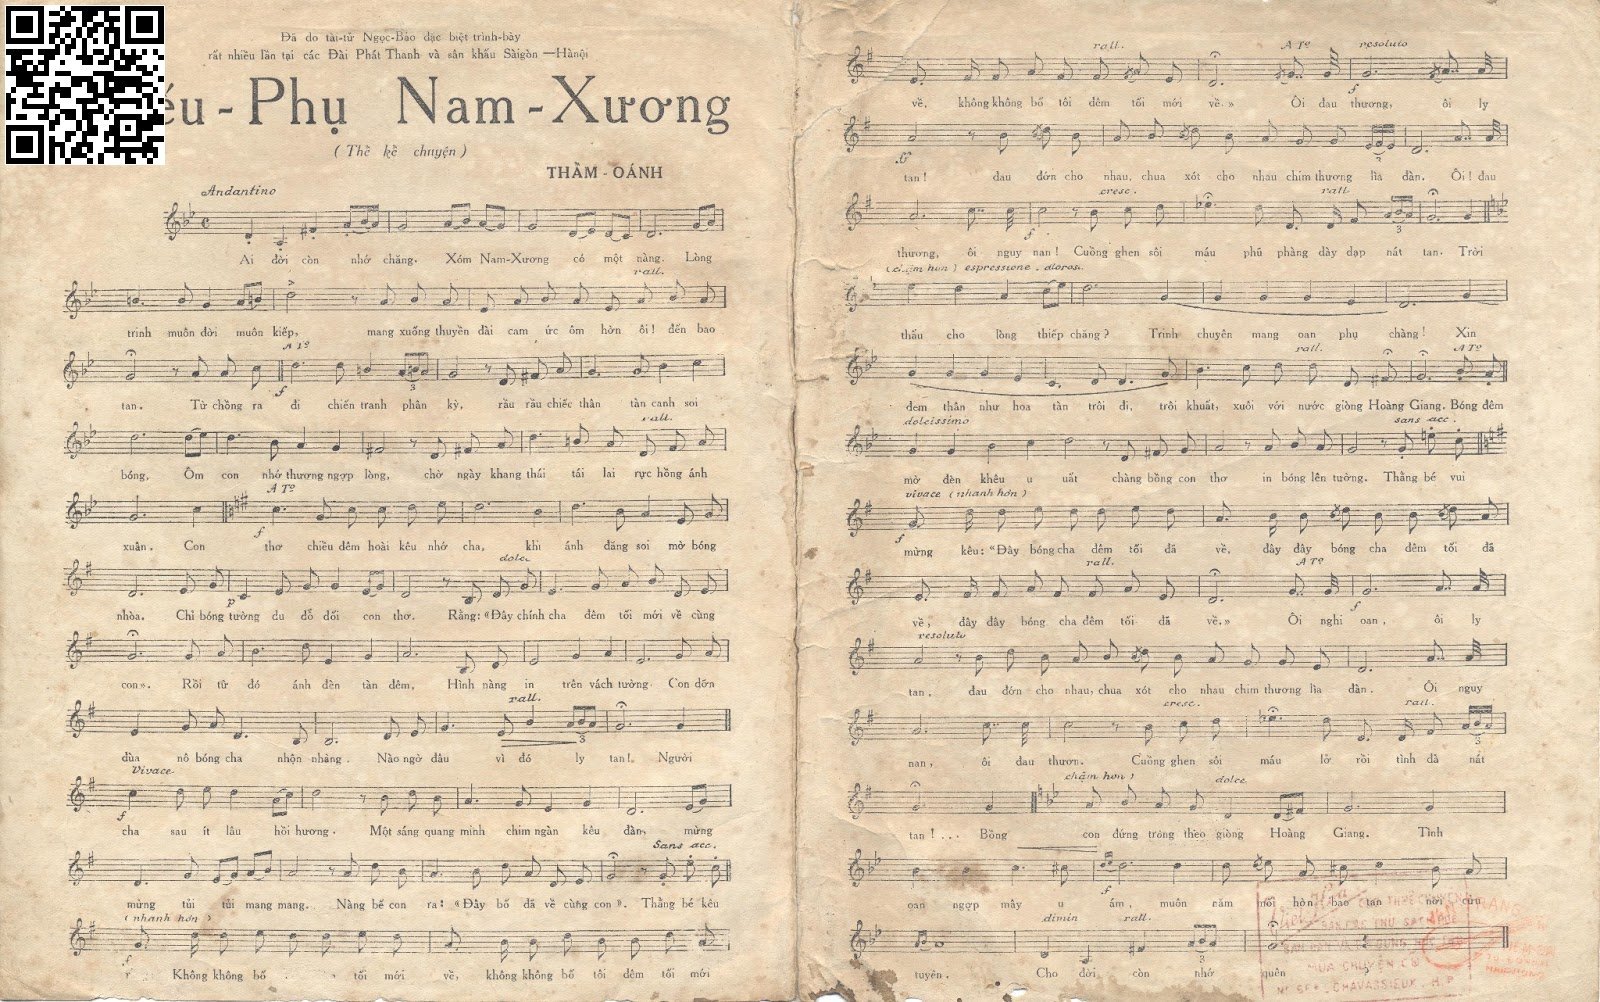 Đã do tài-tử Ngọc-Bảo đặc biệt trình-bày
rất nhiều lần tại các Đài Phát Thanh và sân khấu Sàigòn—Hànội
Phụ Nam-Xương
(Thể kể chuyện)
THẨM-OÁNH
Andantino
Ai đời còn nhớ chăng. Xóm Nam-Xương có một nàng. Lòng
rall.
trinh muôn đời muôn kiếp, mang xuống thuyền đài cam ức ôm hờn ôi! đến bao
A Tº
f
3
tan. Từ chồng ra đi chiến tranh phân kỳ, rầu rầu chiếc thân tàn canh soi
rall.
bóng, Ôm con nhớ thương ngợp lòng, chờ ngày khang thái tái lai rực hồng ánh
A Tº
f
xuân. Con thơ chiều đêm hoài kêu nhớ cha, khi ánh đăng soi mờ bóng
dolce
p
nhòa. Chỉ bóng tường du dỗ dối con thơ. Rằng: «Đây chính cha đêm tối mới về cùng
con». Rồi từ đó ánh đèn tàn đêm, Hình nàng in trên vách tường. Con dỡn
rall.
3
đùa nô bóng cha nhộn nhàng. Nào ngờ đâu vì đó ly tan! Người
Vivace
f
cha sau ít lâu hồi hương. Một sáng quang minh chim ngàn kêu đàn, mừng
Sans acc.
mừng tủi tủi mang mang. Nàng bế con ra: «Đây bố đã về cùng con». Thằng bé kêu
(nhanh hơn)
Không không bố tối mới về, không không bố tôi đêm tối mới
rall. A Tº resoluto
f
về, không không bố tôi đêm tối mới về.» Ôi đau thương, ôi ly
ff
3
tan! đau đớn cho nhau, chua xót cho nhau chim thương lìa đàn. Ôi! đau
cresc. rall
f
3
thương, ôi nguy nan! Cuồng ghen sôi máu phũ phàng dày đạp nát tan. Trời
(chậm hơn) espressione. doloros.
thấu cho lòng thiếp chăng? Trinh chuyên mang oan phụ chàng! Xin
rall. A Tº
đem thân như hoa tàn trôi đi, trôi khuất, xuôi với nước giòng Hoàng Giang. Bóng đêm
dolcissimo sans acc.
mờ đèn khêu u uất chàng bồng con thơ in bóng lên tường. Thằng bé vui
vivace (nhanh hơn)
f
mừng kêu: “Đây bóng cha đêm tối đã về, đây đây bóng cha đêm tối đã
rall. A Tº
f
về, đây đây bóng cha đêm tối đã về.» Ôi nghi oan, ôi ly
resoluto
tan, đau đớn cho nhau, chua xót cho nhau chim thương lìa đàn. Ôi nguy
cresc. rall.
f
3
nan, ôi đau thươn. Cuồng ghen sôi máu lở rồi tình đà nát
chậm hơn) dolce
tan!... Bồng con đứng trông theo giòng Hoàng Giang. Tình
f
oan ngợp mây u ám, muôn năm mối hờn bao tan nơi cửu
dimin rall.
3
tuyền. Cho đời còn nhớ quên